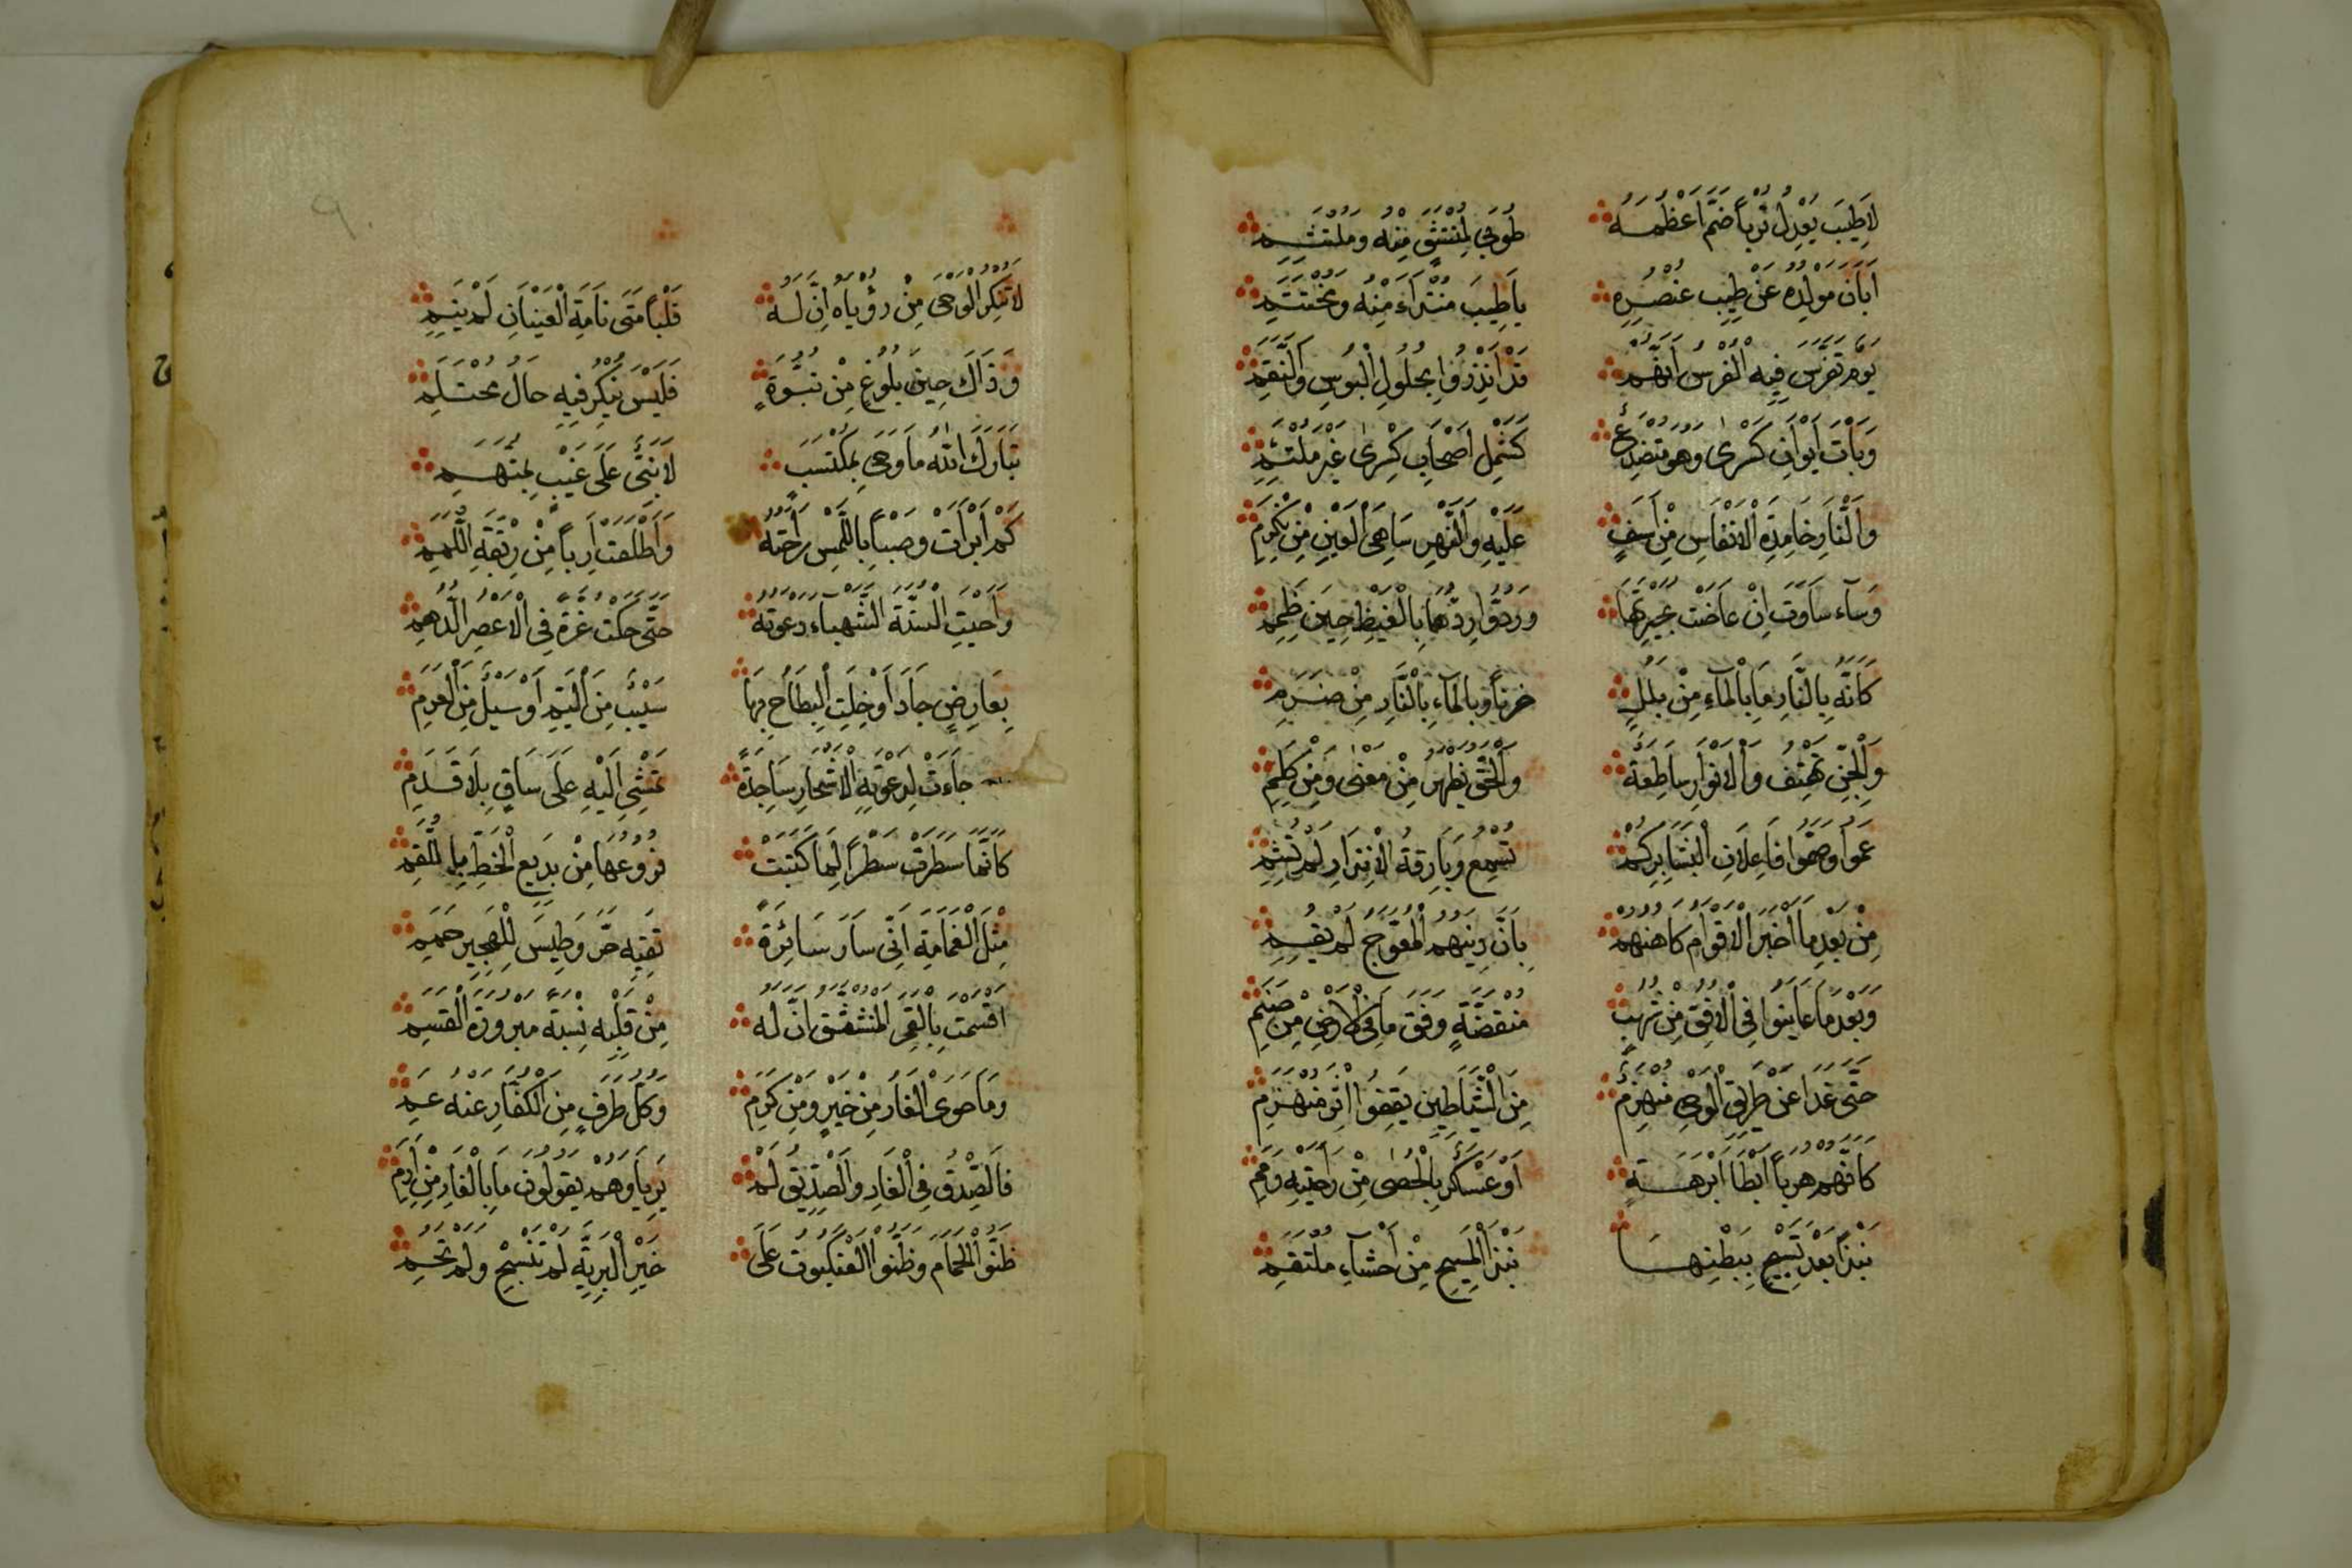 لَاطِيبَ يَعْدِلُ تُرْبًا ضَمَّ اَعْظُمَهُ طُوبَى لِمُنْتَشِقٍ مِنْهُ وَمُلْتَثِمِ
اَبَانَ مَوْلِدُهُ عَنْ طِيبِ عُنْصُرِهِ يَاطِيبَ مُبْتَدَاءٍ مِنْهُ وَمُخْتَتَمِ
يَوْمٌ تَفَرَّسَ فِيهِ الْفُرْسُ اَنَّهُمُ قَدْ اُنْذِرُوا بِحُلُولِ الْبُوسِ وَالنِّقَمِ
وَبَاتَ اَيْوَانُ كَسْرٰى وَهُوَ مُنْصَدِعٌ كَشَمْلِ اَصْحَابِ كِسْرٰى غَيْرَ مُلْتَئِمِ
وَالنَّارُ خَامِدَةُ الْاَنْفَاسِ مِنْ اَسَفٍ عَلَيْهِ وَالنَّهْرُ سَاهِىَ الْعَيْنِ مِنْ
وَسَآءَ سَاوَةَ اِنْ غَاضَتْ بُحَيْرَتُهَا وَرُدَّوَارِدُهَا بِالْغَيْظِ حِينَ ظَمِ
كَاَنَّهُ بِالنَّارِ مَا بِالْمَاءِ مِنْ بَلَلٍ حُزْنًا وَبِالْمَآءِ بِالنَّارِ مِنْ ضَرَمِ
وَالْجِنُّ تَهْتِفُ وَالْاَنْوَارُ سَاطِعَةٌ وَالْحَقُّ يَظْهَرُ مِنْ مَعْنٰى وَمِنْ كَلِمِ
عَمُوا وَصَمُّوا فَاِعْلَانُ الْبَشَايِرِ لَمْ تُسْمَعْ وَبَارِقَةُ الْاِنْذَارِ لَمْ تُشَمِ
مِنْ بَعْدِ مَا اَخْبَرَ الْاَقْوَامَ كَاهِنُهُمْ بِاَنَّ دِينَهُمُ الْمُعْوَجَّ لَمْ يَقُمِ
وَبَعْدَ مَا عَايَنُوا فِى الْاُفْقِ مِنْ شُهُبٍ مُنْقَضَّةٍ وَفْقَ مَا فِى الْاَرْضِ مِنْ صَنَمِ
حَتّٰى غَدَا عَنْ طَرِيقِ الْوَحْىِ مُنْهَزِمٌ مِنَ الشَّيَاطِينِ يَقْفُوا اِثْرَ مُنْهَزِمِ
كَاَنَّهُمْ هَرَبًا اَبْطَا اَبْرَهَةٍ اَوْ عَسْكَرٌ بِالْحَصٰى مِنْ رَاحَتَيْهِ رُمِ
نَبْذًا بَعْدَ تَسْبِيحٍ بِبَطْنِهِمَا نَبْذَ الْمُسَبِّحِ مِنْ اَحْشَآءِ مُلْتَقِمِ
لَا تُنْكِرِ الْوَحْىَ مِنْ رُؤْيَاهُ اِنَّ لَهُ قَلْبًا مَتٰى نَامَةِ الْعَيْنَانِ لَمْ يَنَمِ
وَذَاكَ حِينَ بُلُوغٍ مِنْ نُبُوَّةٍ فَلَيْسَ يُنْكَرُ فِيهِ حَالُ مُحْتَلِمِ
تَبَارَكَ اللّٰهُ مَا وَحْىٌ بِمُكْتَسَبٍ لَا نَبِىٌّ عَلٰى غَيْبٍ بِمُتَّهَمِ
كَمْ اَبْرَاَتْ وَصِبًا بِاللَّمْسِ رَاحَتُهُ وَاَطْلَقَتْ اَرِبًا مِنْ رِبْقَةِ اللَّمَمِ
وَاَحْيَتِ السَّنَةَ الشَّهْبَاءَ دَعْوَتُهُ حَتّٰى حَكَتْ غُرَّةً فِى الْاَعْصُرِ الدُّهُمِ
بِعَارِضٍ جَادَ اَوْ خِلْتَ الْبِطَاحَ بِهَا سَيْبٌ مِنَ الْيَمِّ اَوْ سَيْلٌ مِنَ الْعَرِمِ
جَاءَتْ لِدَعْوَتِهِ الْاَشْجَارُ سَاجِدَةً تَمْشِى اِلَيْهِ عَلٰى سَاقٍ بِلَا قَدَمِ
كَاَنَّمَا سَطَرَتْ سَطْرًا لِمَا كَتَبَتْ فُرُوعُهَا مِنْ بَدِيعِ الْخَطِّ بِاللَّقَمِ
مِثْلَ الْغَمَامَةِ اَنّٰى سَارَ سَائِرَةً تَقِيهِ حَرَّ وَطِيسٍ لِلْهَجِيرِ حَمِ
اَقْسَمْتُ بِالْقَمَرِ الْمُنْشَقِّ اِنَّ لَهُ مِنْ قَلْبِهِ نِسْبَةً مَبْرُورَةَ الْقَسَمِ
وَمَا حَوَى الْغَارُ مِنْ خَيْرٍ وَمِنْ كَرَمٍ وَكُلُّ طَرْفٍ مِنَ الْكُفَّارِ عَنْهُ عَمِ
فَالصِّدْقُ فِى الْغَارِ وَالصِّدِّيقُ لَمْ يَرِيَا وَهُمْ يَقُولُونَ مَا بِالْغَارِ مِنْ اَرِمِ
ظَنُّوا الْحَمَامَ وَظَنُّوا الْعَنْكَبُوتَ عَلٰى خَيْرِ الْبَرِيَّةِ لَمْ تَنْسُجْ وَلَمْ تَحُمِ